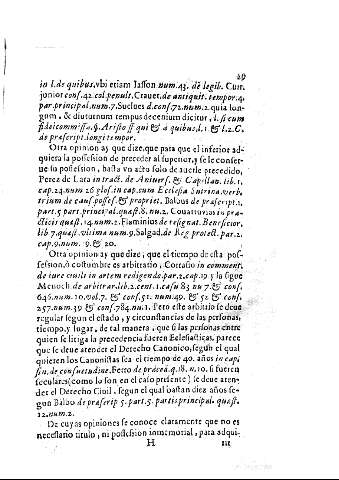 29
in l. de quibus, vbi etiam Iasson num. 43. dè legib. Curt.
junior cons. 42. col. penult. Crauet. de antiquit. tempor. 4.
par. principal. num. 7. Suelues d. cons. 72. num. 2. quia lon-
gum, & diuturnum tempus decennium dicitur, l. si cum
fideicommissa, §. Aristo ff qui & a quibus, l. 1 & l. 2. C.
de prescript. longi tempor.
Otra opinion ay que dize, que para que el inferior ad-
quiera la possession de preceder al superior, y se le conser-
ue su possession, basta vn acto solo de auerle precedido,
Perez de Lara in tract. de Aniuers. & Capellan. lib. 1.
cap. 24. num 26 glos. in cap. cum Ecclesia Sutrina. verb.
trium de caus. posses. & propriet. Balbus de prescript. 2.
part. 5 part. principal. quæst. 8. nu. 2. Couarruuias in pra-
cticis quæst. 14. num. 2. Flaminios de resignat. Beneficior.
lib 7. quæst. vltima num. 9. Salgad. de Reg protect. par. 2.
cap. 9. num. 9. & 20.
Otra opinion ay que dize, que el tiempo de esta pos-
session, ò costumbre es arbitratio, Cortasio in comment.
de iure ciuili in artem redigendo. par. 2. cap. 19 y la sigue
Menoch de arbitrar. lib. 2. cent. 1. casu 83 nu 7. & cons.
646. num 10. vol. 7. & cons. 51. num. 49. & 52 & cons.
257. num. 39 & cons. 784. nu. 1. Pero este arbitrio se deue
regular segun el estado, y circunstancias de las personas,
tiempo, y lugar, de tal manera, que si las personas entre
quien se litiga la precedencia fueren Eclesiasticas, parece
que se deue atender el Derecho Canonico, segun el qual
quieren los Canonistas sea el tiempo de 40. años in capi
fin. de consuetudine. Ferro de præced. q. 18. n. 10. si fueren
seculares (como lo son en el caso presente) se deue aten-
der el Derecho Ciuil, segun el qual bastan diez años se-
gun Balbo de prescrip 5. part. 5. partis principal. quæst.
12. num. 2.
De cuyas opiniones se conoce claramente que no es
necessario titulo, ni possession inmemorial, para adqui-
H